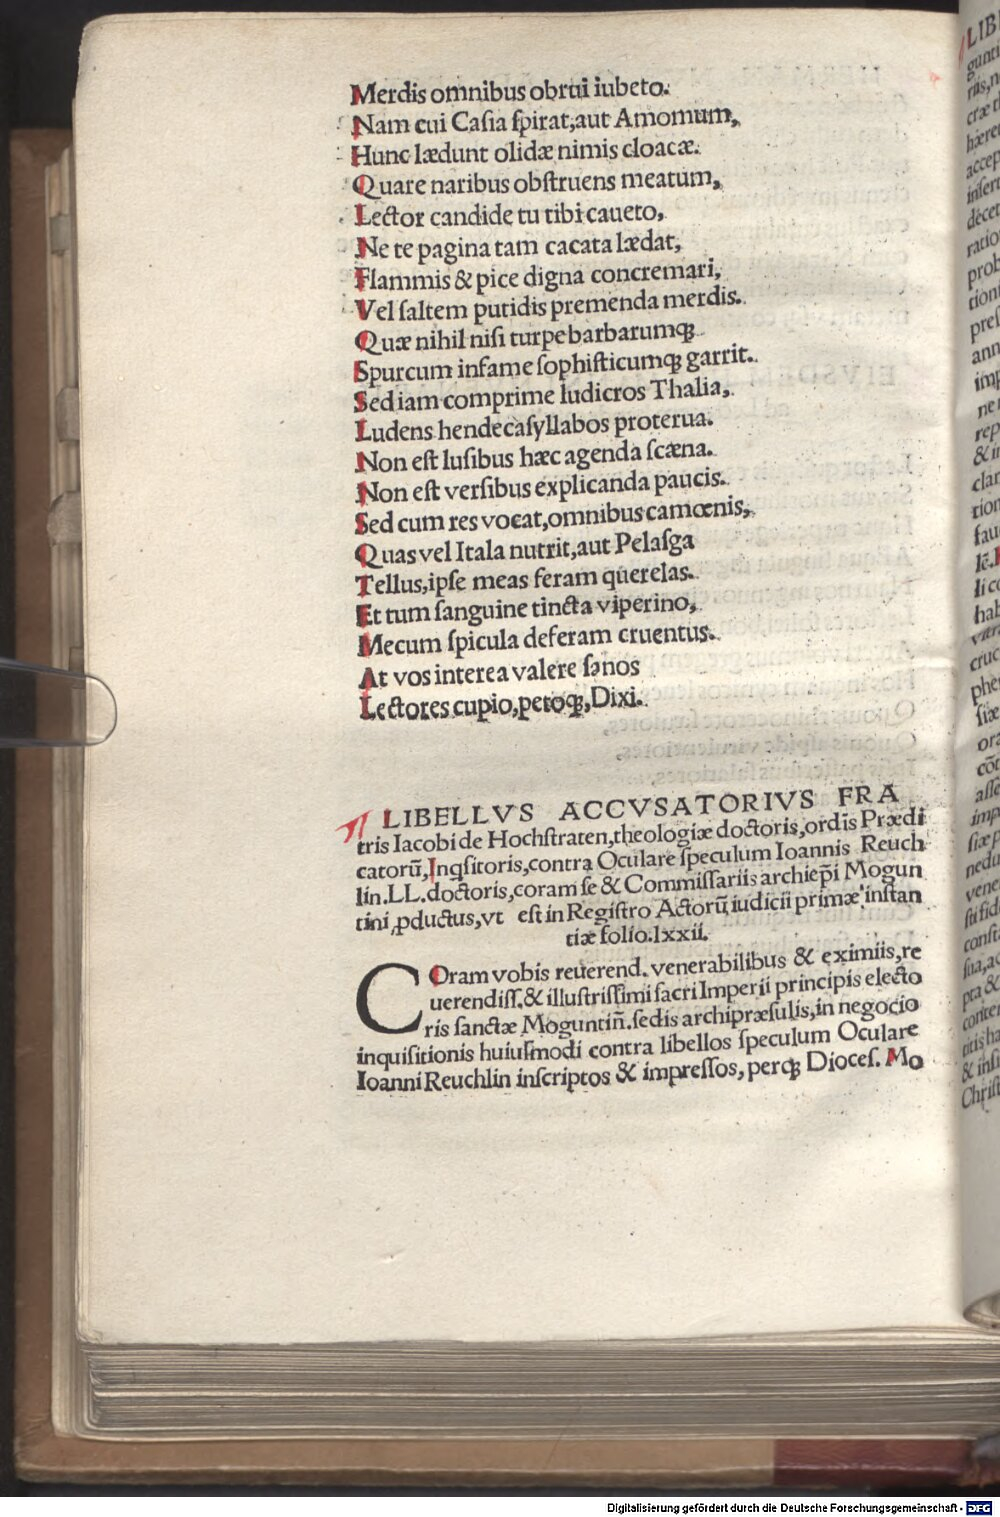 Merdis omnibus obrui iubeto.
Nam cui Casia spirat, aut Amomum,
Hunc lædunt olidæ nimis cloacæ.
Quare naribus obstruens meatum,
Lector candide tu tibi caueto,
Ne te pagina tam cacata lædat,
Flammis & pice digna concremari,
Vel saltem putidis premenda merdis.
Quæ nihil nisi turpe barbarumqꝫ
Spurcum infame sophisticumqꝫ garrit.
Sed iam comprime ludicros Thalia,
Ludens hendecasyllabos proterua.
Non est lusibus hæc agenda scæna.
Non est versibus explicanda paucis.
Sed cum res vocat, omnibus camœnis,
Quas vel Itala nutrit, aut Pelasga
Tellus, ipse meas feram querelas.
Et tum sanguine tincta viperino,
Mecum spicula deferam cruentus.
At vos interea valere sanos
Lectores cupio, petoqꝫ, Dixi.
LIBELLVS ACCVSATORIVS FRA
tris Iacobi de Hochstraten, theologiæ doctoris, ordīs Prædi
catorū, Inqsitoris, contra Oculare speculum Ioannis Reuch
lin. LL. doctoris, coram se & Commissariis archiep̄i Mogun
tini, ꝓductus, vt est in Registro Actorū iudicii primæ instan
tiæ folio. lxxii.
COram vobis reuerend. venerabilibus & eximiis, re
uerendiss. & illustrissimi sacri Imperii principis electo
ris sanctæ Moguntiñ. sedis archipræsulis, in negocio
inquisitionis huiusmodi contra libellos speculum Oculare
Ioanni Reuchlin inscriptos & impressos, perqꝫ Dioces. Mo
Digitalisierung gefördert durch die Deutsche Forschungsgemeinschaft - DFG